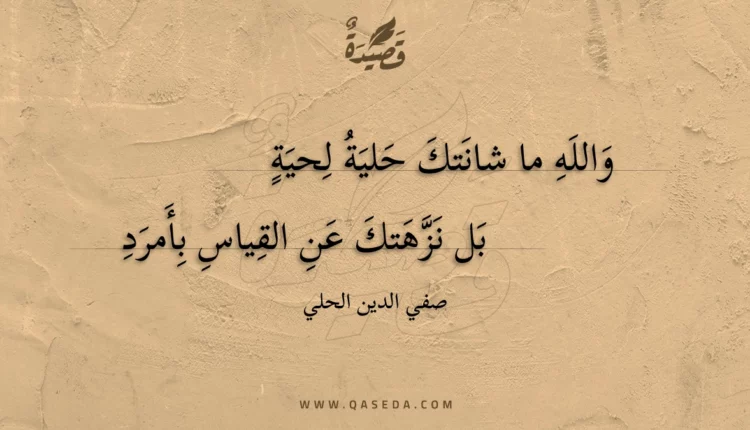 قَصِيدَةٌ
وَاللَهِ ما شانَتكَ حَليَةُ لِحيَةٍ
بَل نَزَّهَتكَ عَنِ القِياسِ بِأَمرَدِ
صفي الدين الحلي
WWW.QASEDA.COM